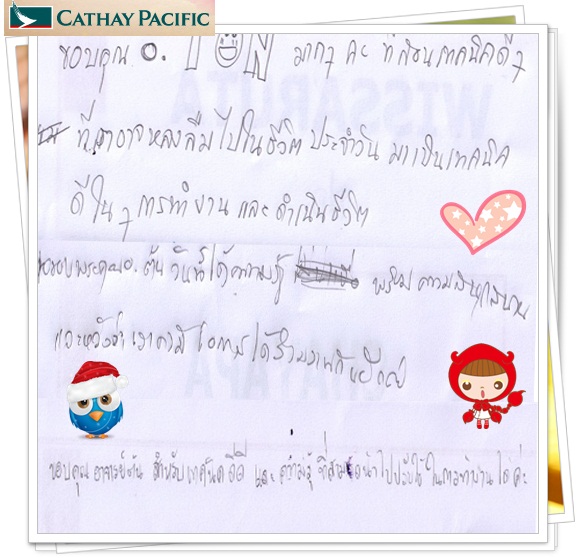 CATHAY PACIFIC
ขอบคุณ อ. มากๆ ค่ะ ที่สอนเทคนิคดีๆ
ที่เราอาจหลงลืมไปในชีวิตประจำวัน มาเป็นเทคนิค
ดีในๆ การทำงาน และ ดำเนินชีวิต
ขอขอบพระคุณอ. ต้น วันนี้ได้ความรู้ พร้อม ความสนุกสนาน
และหวังว่า เราคงมีโอกาสได้ร่วมงานกันอีกค่ะ
ขอบคุณ อาจารย์ต้น สำหรับเทคนิคดีดี และ ความรู้ ที่สามารถนำไปปรับใช้ ในการทำงาน ได้ค่ะ